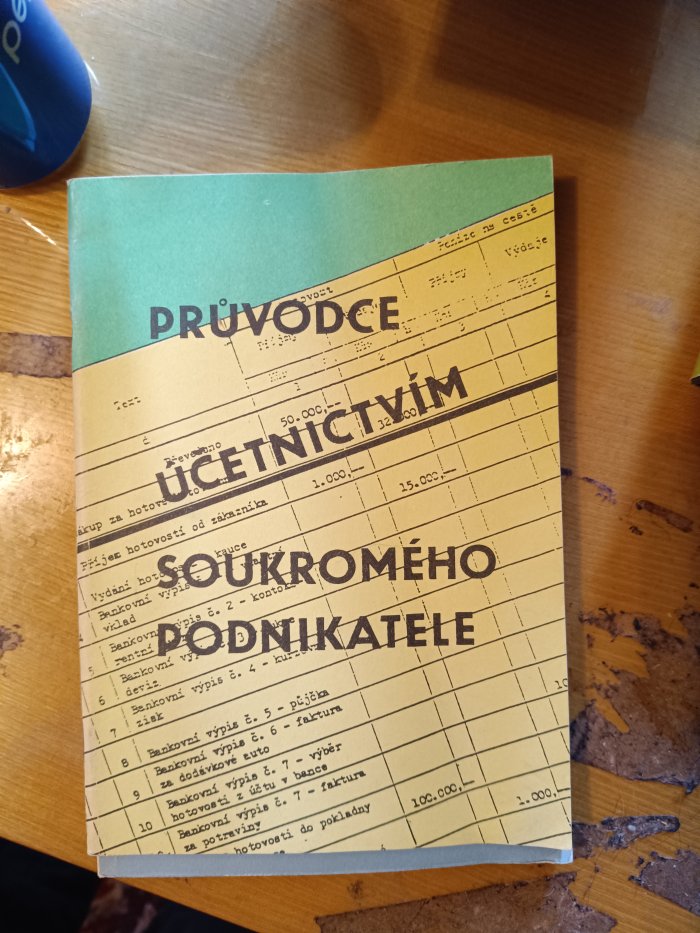 Peníze na cestě
Příjmy
Výdaje
PRŮVODCE
Text
50.000,--
Převedeno
32.000
ÚČETNICTVÍM
ákup za hotové
1.000,--
15.000,--
Příjem hotovostí od zákazníka
Vydání hotov - kauce
Bankovní výpis
vklad
SOUKROMÉHO
5 Bankovní výpis č. 2 - kontoko
rentní
PODNIKATELE
6 Bankovní výpis
deviz
7 Bankovní výpis č. 4 - kurzov
zisk
8 Bankovní výpis č. 5 - půjčka
9 Bankovní výpis č. 6 - faktura
za dodávkové auto
10 Bankovní výpis č. 7 - výběr
hotovosti z účtu v bance
Bankovní výpis č. 7 - faktura
za potraviny
100.000,--
1.000,--
hotovosti do pokladny